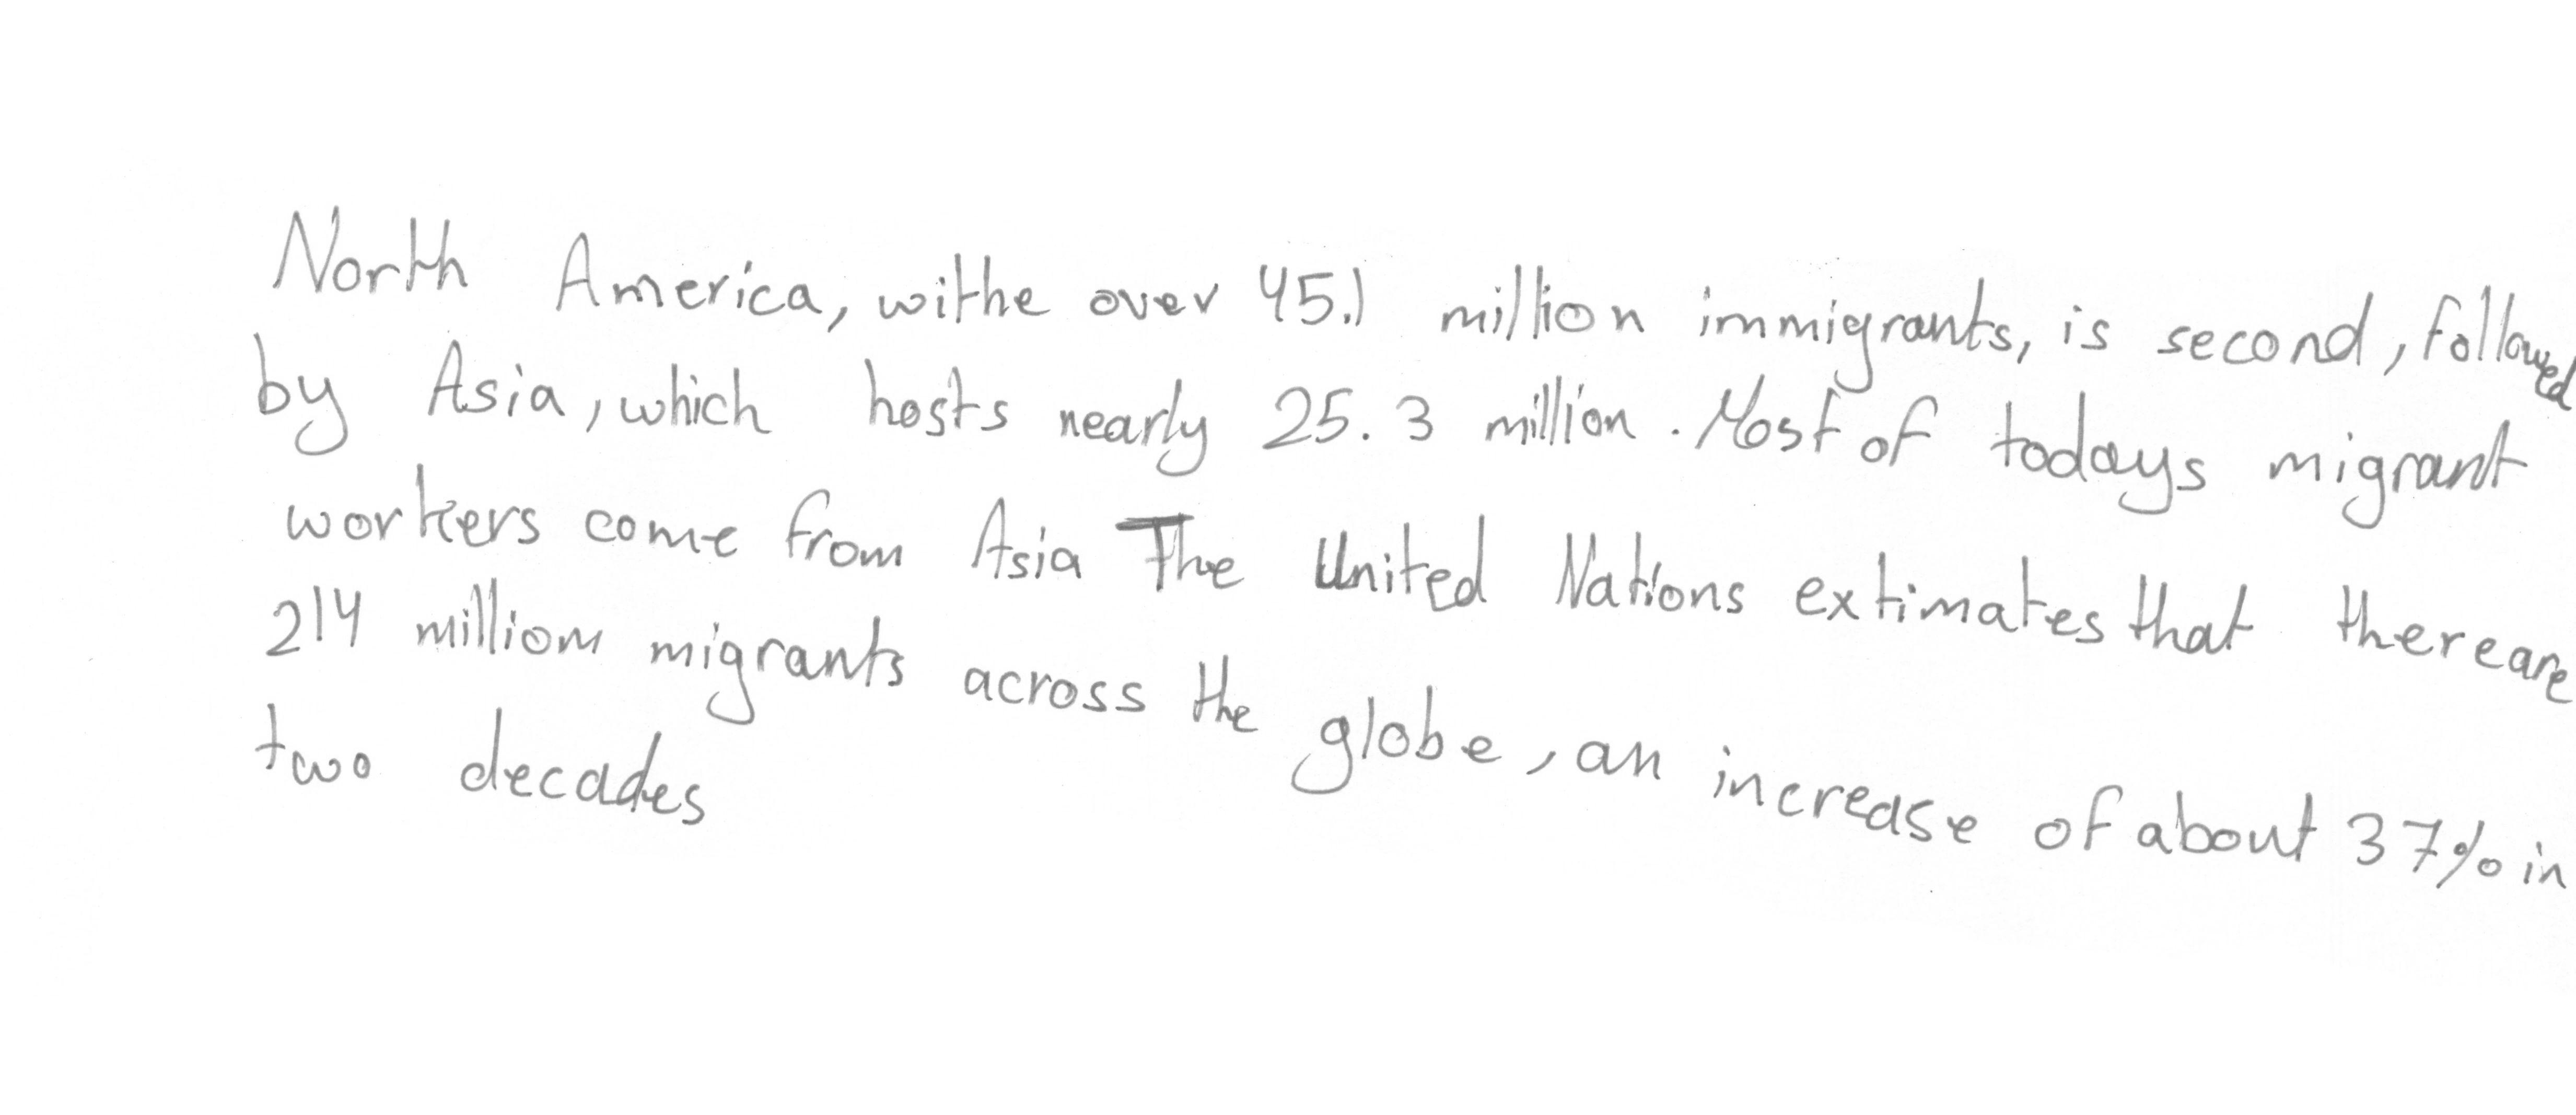 North America, withe over 45.1 million immigrants, is second, followed
by Asia, which hosts nearly 25.3 million. Most of todays migrant
workers come from Asia The United Nations extimates that there are
214 milliom migrants across the globe, an increase of about 37% in
two decades